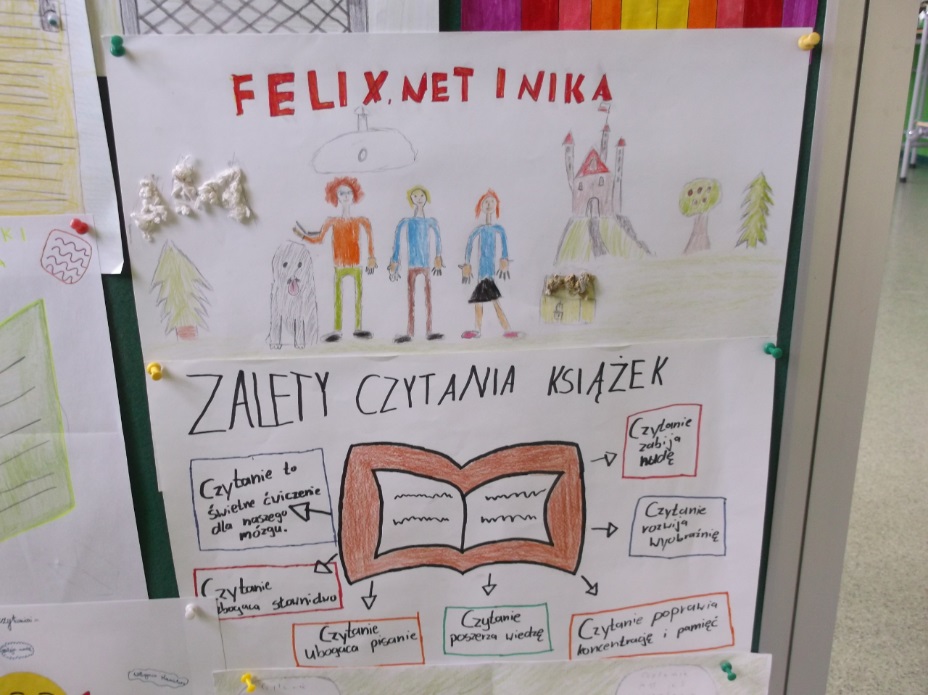 FELIX, NET I NIKA
ZALETY CZYTANIA KSIĄŻEK
Czytanie to
świetne ćwiczenie
dla naszego
mózgu.
Czytanie
zabija
nudę
Czytanie
rozwija
wyobraźnię
Czytanie
ubogaca słownictwo
Czytanie
ubogaca pisanie
Czytanie
poszerza wiedzę
Czytanie poprawia
koncentrację i pamięć